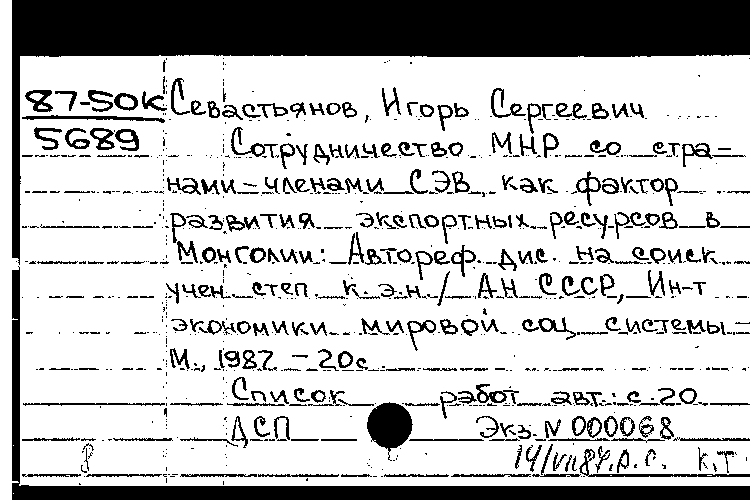 87-50К Севастьянов, Игорь Сергеевич
5689 Сотрудничество МНР со стра-
нами-членами СЭВ как фактор
развития экспортных ресурсов в
Монголии: Автореф. дис. на соиск
учен. степ. к.э.н./ АН СССР, Ин-т
экономики мировой соц. системы -
М., 1987 - 20с.
Список работ авт.: с.20
ДСП Экз. N 000068
8 К.Т.